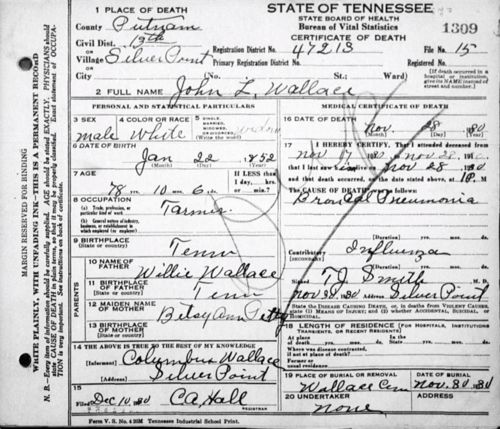 1 PLACE OF DEATH
County Putnam
Civil Dist. 19th
Village Silver Point
City
STATE OF TENNESSEE
STATE BOARD OF HEALTH
Bureau of Vital Statistics
CERTIFICATE OF DEATH
1309
Registration District No. 47213 File No. 15
Primary Registration District No. Registered No.
No. St.; Ward)
(If death occurred in a hospital or institution, give its NAME instead of street and number.)
2 FULL NAME John L. Wallace
PERSONAL AND STATISTICAL PARTICULARS
3 SEX male
4 COLOR OR RACE White
5 SINGLE, MARRIED, WIDOWED, OR DIVORCED (Write the word)
6 DATE OF BIRTH
Jan 22 1852
(Month) (Day) (Year)
7 AGE
78 yrs. 10 mos. 6 ds.
If LESS than
8 OCCUPATION
(a) Trade, profession, or particular kind of work Farmer
(b) General nature of industry, business, or establishment in which employed (or employer)
9 BIRTHPLACE
Tenn
10 NAME OF FATHER Willie Wallace
11 BIRTHPLACE OF FATHER Tenn
12 MAIDEN NAME OF MOTHER Betsy Ann Petty
13 BIRTHPLACE OF MOTHER
PARENTS
14 THE ABOVE IS TRUE TO THE BEST OF MY KNOWLEDGE
(Informant) Columbus Wallace
(Address) Silver Point
15
Filed Dec 10, 1930 C A Hall
REGISTRAR
MEDICAL CERTIFICATE OF DEATH
16 DATE OF DEATH
Nov. 28 1930
(Month) (Day) (Year)
17 I HEREBY CERTIFY, That I attended deceased
from Nov 17 1930 to Nov 28
that I last saw alive on Nov 28 1930
and that death occurred, on the date stated above, at
The CAUSE OF DEATH was as follows:
Broncal Pneumonia
(Duration) yrs. mos. ds.
Contributory Influenza
(Secondary)
(Duration) yrs. mos. ds.
(Signed) T J. Smith M. D.
(Address) Silver Point
State the DISEASE CAUSING DEATH, or, in deaths from VIOLENT CAUSES, state (1) MEANS OF INJURY; and (2) whether ACCIDENTAL, SUICIDAL, or HOMICIDAL.
18 LENGTH OF RESIDENCE (FOR HOSPITALS, INSTITUTIONS, TRANSIENTS, OR RECENT RESIDENTS)
At place of death yrs. mos. ds. In the State yrs. mos. ds.
Where was disease contracted, if not at place of death?
Former or usual residence
19 PLACE OF BURIAL OR REMOVAL Wallace Cem
DATE OF BURIAL Nov. 30 30
20 UNDERTAKER none
ADDRESS
Form V. S. No. 4 25M Tennessee Industrial School Print.
MARGIN RESERVED FOR BINDING
WRITE PLAINLY, WITH UNFADING INK—THIS IS A PERMANENT RECORD
N. B.—Every item of information should be carefully supplied. AGE should be stated EXACTLY. PHYSICIANS should state CAUSE OF DEATH in plain terms, so that it may be properly classified. Exact statement of OCCUPATION is very important. See instructions on back of certificate.